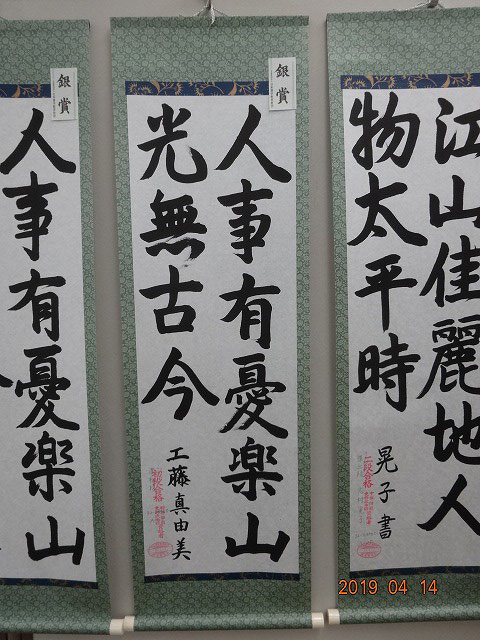 江山佳麗地人
物太平時
晃子書
二段合格
銀賞
人事有憂楽山
光無古今
工藤真由美
初段合格
銀賞
人事有憂楽山
2019 04 14